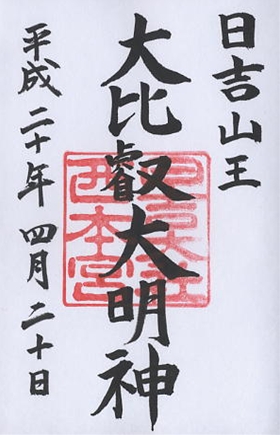 日吉山王
大比叡大明神
平成二十年 四月二十日
日吉大社
西本宮